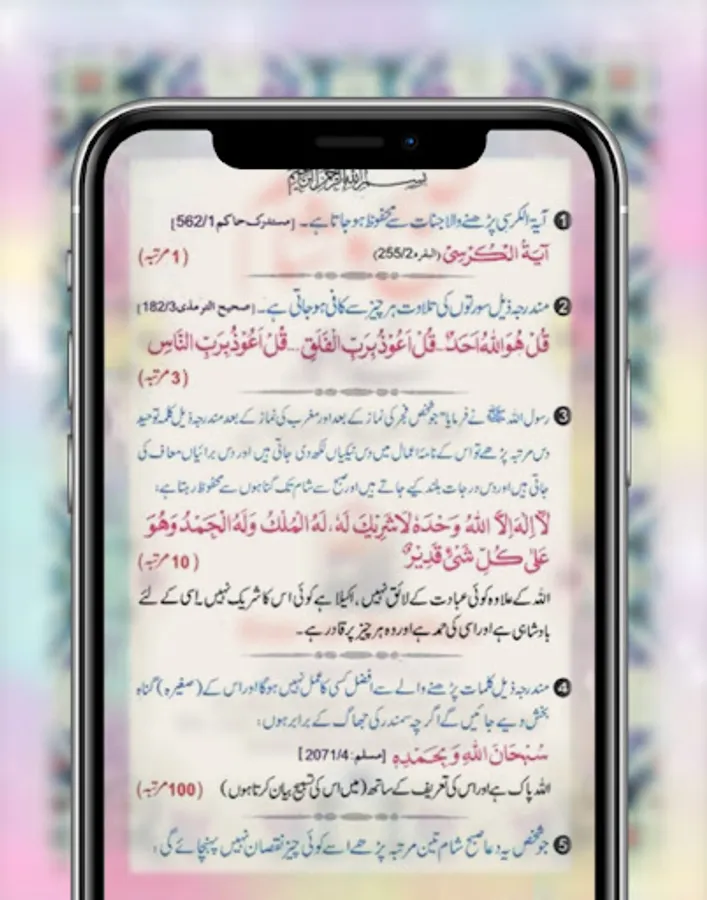 بسم الله الرحمن الرحيم
1 آیۃ الکرسی پڑھنے والا جنات سے محفوظ ہو جاتا ہے۔ [مستدرک حاکم 562/1]
آیَۃُ الْکُرْسِیْ (البقرہ 255/2) (1 مرتبہ)
2 مندرجہ ذیل سورتوں کی تلاوت ہر چیز سے کافی ہو جاتی ہے۔ [صحیح الترمذی 182/3]
قُلْ ھُوَاللّٰہُ اَحَدٌ... قُلْ اَعُوْذُ بِرَبِّ الْفَلَقِ... قُلْ اَعُوْذُ بِرَبِّ النَّاسِ
(3 مرتبہ)
3 رسول اللہ ﷺ نے فرمایا "جو شخص فجر کی نماز کے بعد اور مغرب کی نماز کے بعد مندرجہ ذیل کلمہ توحید
دس مرتبہ پڑھے تو اس کے نامۂ اعمال میں دس نیکیاں لکھ دی جاتی ہیں اور دس برائیاں معاف کی
جاتی ہیں اور دس درجات بلند کیے جاتے ہیں اور صبح سے شام تک گناہوں سے محفوظ رہتا ہے:
لَآ اِلٰہَ اِلَّا اللّٰہُ وَحْدَہٗ لَا شَرِیْکَ لَہٗ، لَہُ الْمُلْکُ وَلَہُ الْحَمْدُ وَھُوَ
عَلٰی کُلِّ شَیْئٍ قَدِیْرٌ (10 مرتبہ)
اللہ کے علاوہ کوئی عبادت کے لائق نہیں، اکیلا ہے کوئی اس کا شریک نہیں۔ اسی کے لئے
بادشاہی ہے اور اسی کی حمد ہے اور وہ ہر چیز پر قادر ہے۔
4 مندرجہ ذیل کلمات پڑھنے والے سے افضل کسی کا عمل نہیں ہوگا اور اس کے (صغیرہ) گناہ
بخش دیے جائیں گے اگرچہ سمندر کی جھاگ کے برابر ہوں:
سُبْحَانَ اللّٰہِ وَ بِحَمْدِہٖ [مسلم: 2071/4]
اللہ پاک ہے اور اس کی تعریف کے ساتھ (میں اس کی تسبیح بیان کرتا ہوں) (100 مرتبہ)
5 جو شخص یہ دعا صبح شام تین مرتبہ پڑھے اسے کوئی چیز نقصان نہیں پہنچائے گی: